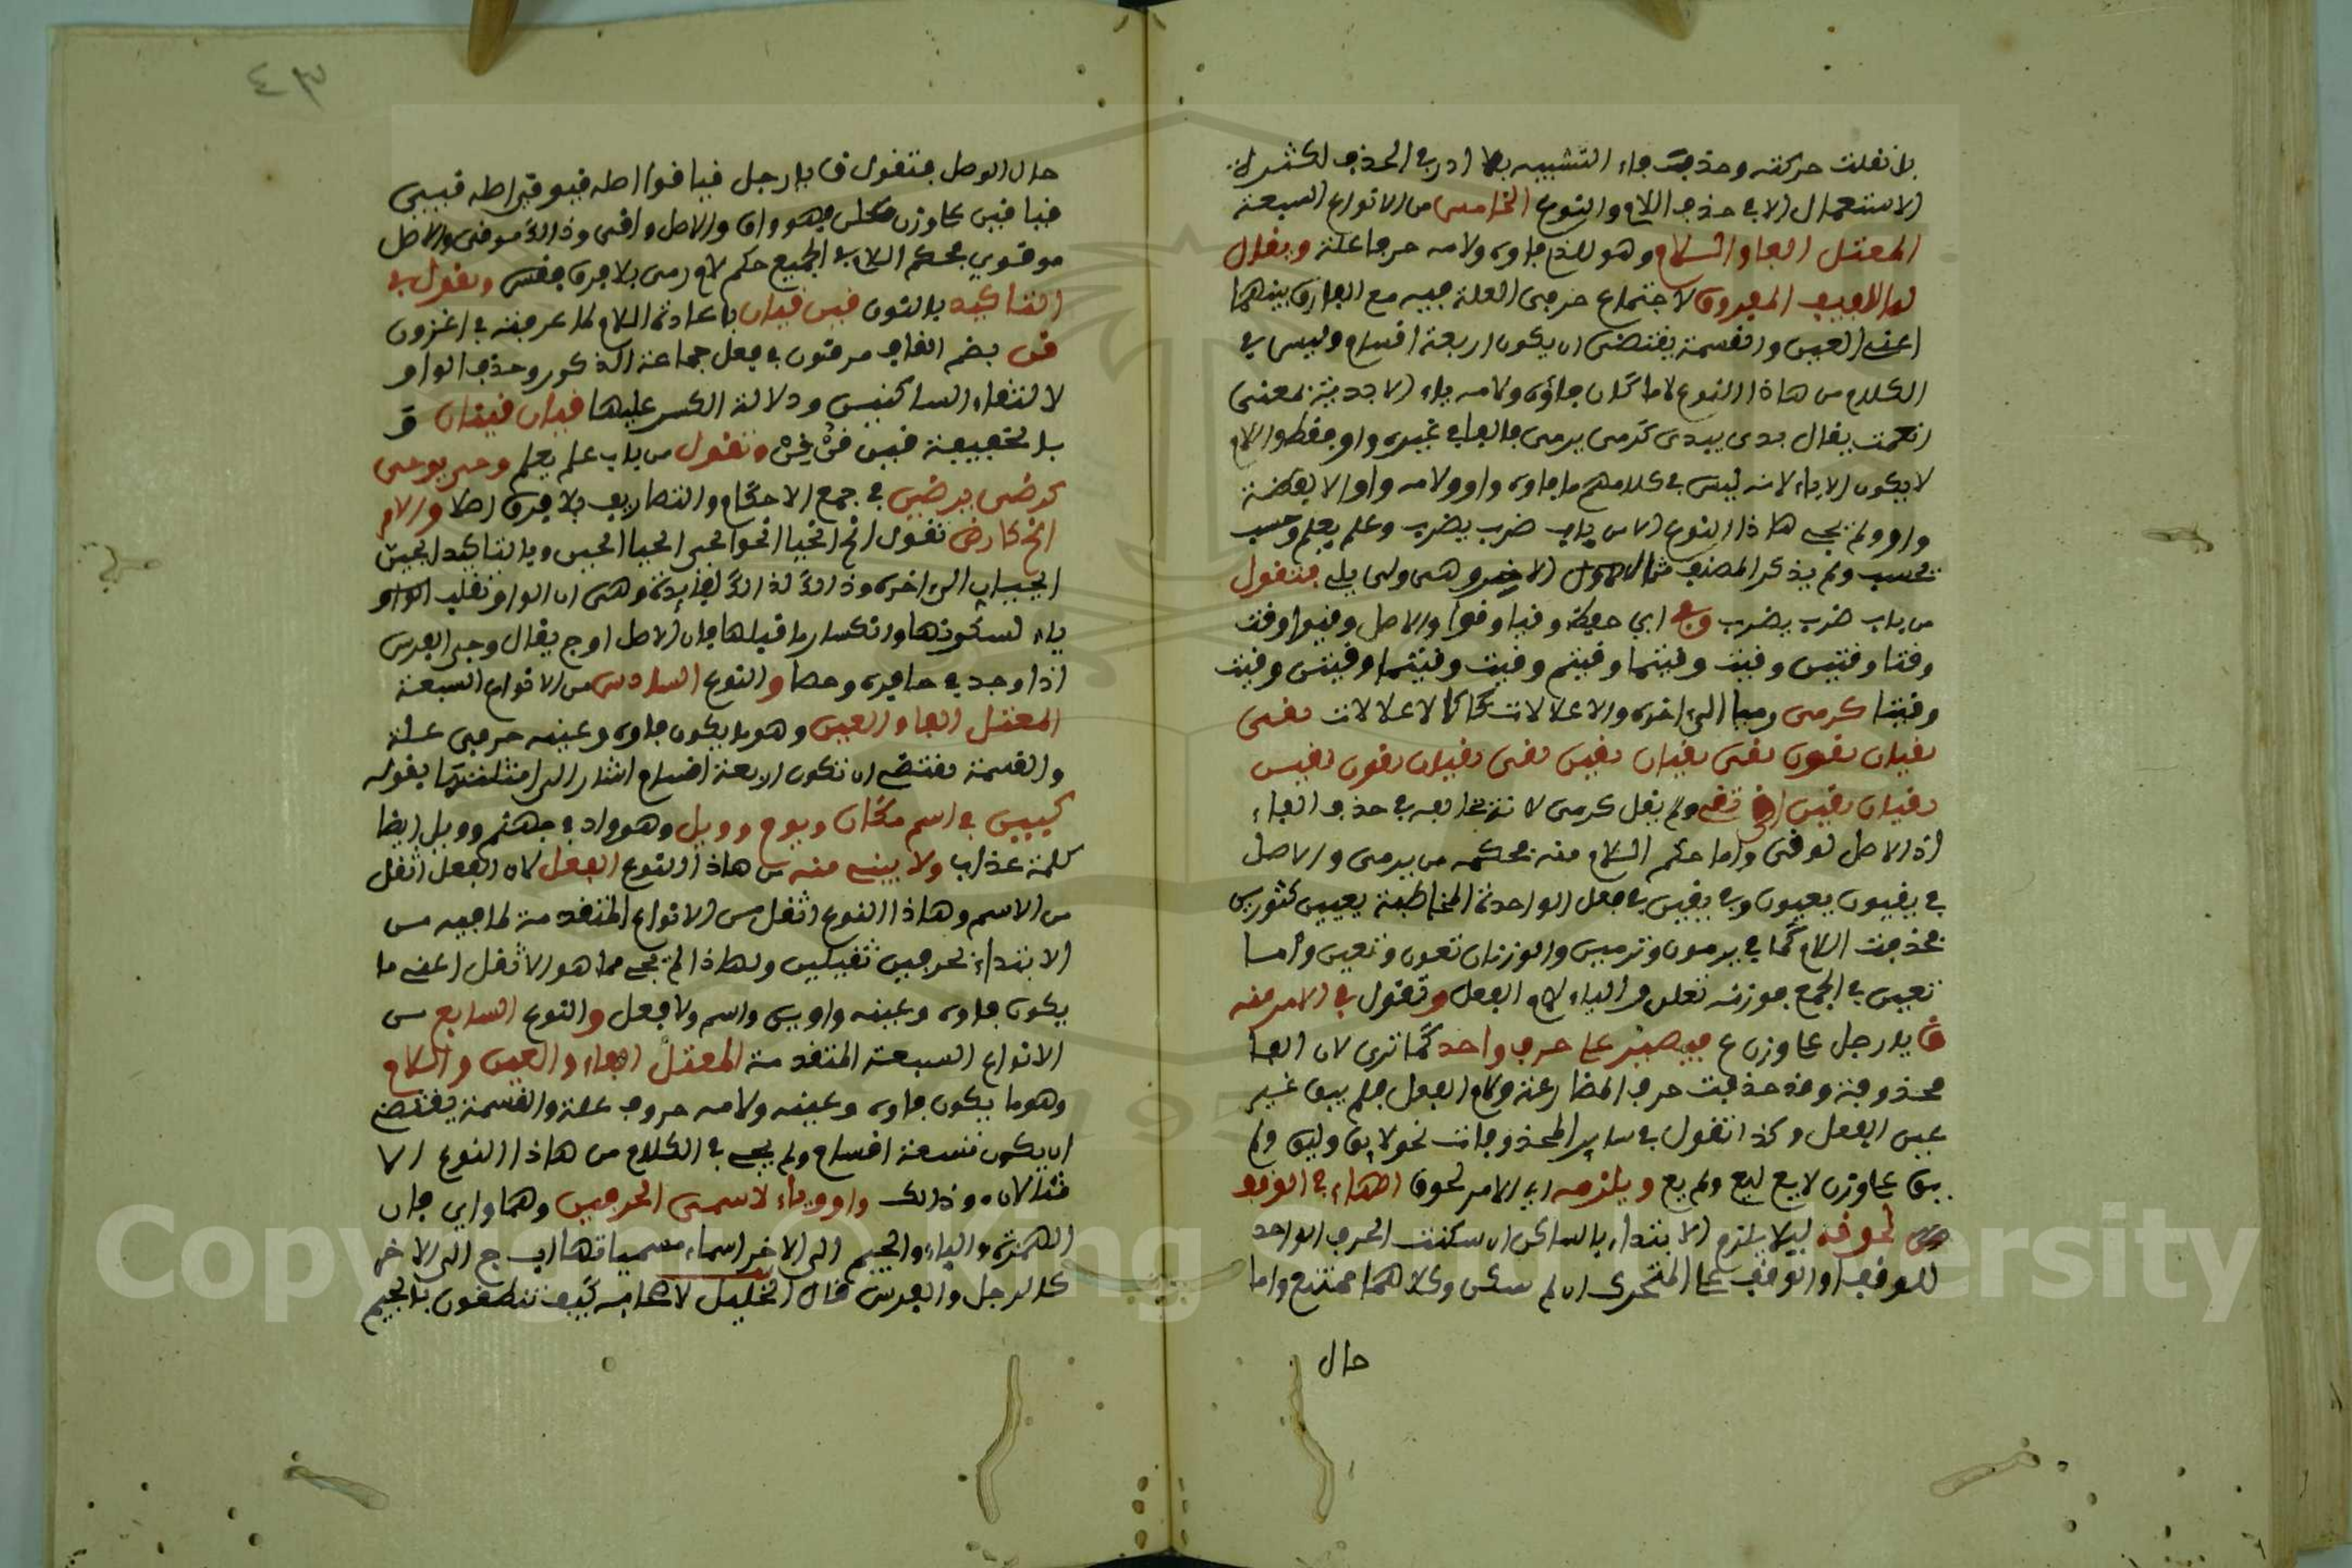 بان نقلت حركته وحذفت فاء التشبيه بها ادرى الحذف لكثرة
الاستعمال الا في حذف اللام والنوع الخامس من الانواع السبعة
المعتل الفا واللام وهو الذي فاوه ولامه حرفا علة ويقال
له اللفيف المفروق لاجتماع حرفي العلة فيه مع الفارق بينهما
اعني العين والقسمة يقتضي ان يكون اربعة اقسام وليس في
الكلام من هاذا النوع لاما كان فاؤه ولامه ياء الا يديت بمعنى
انعمت يقال يدى ييدى كرمى يرمى فالفا في غيره واو فقط واللام
لا يكون الا ياء لانه ليس في كلامهم ما فاوه واو ولامه واو الا لفظة
واو ولم يجي هاذا النوع الا من باب ضرب يضرب وعلم يعلم وحسب
يحسب ولم يذكر المصنف مثال الاخير وهى ولى يلى فتقول
من باب ضرب يضرب وقى اي حفظ وقيا وقوا والاصل وقيوا وقت
وقتا وقين وقيت وقيتما وقيتم وقيت وقيتما وقيتن وقيت
وقينا كرمى رميا الى اخره والاعلالات كالاعلالات يقى
يقيان يقون تقى تقيان يقين تقى تقيان تقون تقين
تقيان تقين اقى نقى ولم يقل كرمى لانه يخالفه في حذف الفاء
اذ الاصل يوقى واما حكم اللام منه فحكمه من يرمى والاصل
في يقيون يعيون وفي تقين في فعل الواحدة المخاطبة تقيين كتورين
فحذفت اللام كما في يرمون وترمين والوزنان تعون وتعين واما
تقين في الجمع فوزنه تعلن والياء لام الفعل وتقول في الامر منه
ق يا رجل على وزن ع فيصير على حرف واحد كما ترى لان الفا
محذوفة وقد حذفت حرف المضارعة ولام الفعل فلم يبق غير
عين الفعل وكذا تقول في ساير المحذوفات نحو لا يق وليق ولم
يق على وزن لا يع ليع ولم يع ويلزمه اي الامر لحوق الهاء في الوقف
لحوقه ليلا يلزم الابتداء بالساكن ان سكنت الحرف الواحد
للوقف او الوقف على المتحرك ان لم يسكن وكلاهما ممتنع واما
حال
٤٣
حال الوصل فتقول ق يا رجل قيا قوا اصله قيوا قى اصله قيى
قيا قين على وزن فهو واق والاصل واقى وذاك موقى والاصل
موقوي فحكم اللام في الجميع حكم لام رمى بلا فرق فقس وتقول في
التاكيد بالنون قين قيان باعادة اللام لما عرفته في اغزون
قن بضم القاف مرفون في فعل جماعة الذكور وحذف الواو
لالتقاء الساكنين ودلالة الكسر عليها قيان قينان و
بالخفيفة قين قن قن وتقول من باب علم يعلم وجى يوجى
كرضى يرضى في جمع الاحكام والتصاريف بلا فرق اصلا والامر
ايج كارض تقول ايج ايجيا ايجوا ايجى ايجيا ايجين وبالتاكيد ايجين
ايجيان الى اخره وذاك لذاك لفايدة وهى ان الواو تقلب الواو
ياء لسكونها وانكسار ما قبلها فان الاصل اوج يقال وجى الفرس
اذا وجد في حافره وجعا والنوع السادس من الانواع السبعة
المعتل الفا والعين وهو ما يكون فاوه وعينه حرفي علة
والقسمة يقتضي ان تكون اربعة اقسام اشار الى امثلتها بقوله
كيين في اسم مكان ويوم وويل وهو واد في جهنم وويل ايضا
كلمة عذاب ولا يبنى منه من هاذا النوع الفعل لان الفعل اثقل
من الاسم وهاذا النوع اثقل من الانواع المتقدمة لما فيه من
الابتداء بحرفين ثقيلين ولهاذا لم يجي مما هو الاثقل اعنى ما
يكون فاوه وعينه واوين واسم ولا فعل والنوع السابع من
الانواع السبعة المتقدمة المعتل الفاء والعين واللام
وهو ما يكون فاوه وعينه ولامه حروف علة والقسمة يقتضي
ان يكون تسعة اقسام ولم يجي في الكلام من هاذا النوع الا
مثالان وذالك واو وياء لاسمى الحرفين وهما واي فان
الهمزة والياء والجيم الى الاخر اسماء مسمياتها اب ج الى الاخر
كالرجل والفرس قال الخليل لاصحابه كيف تنطقون بالجيم